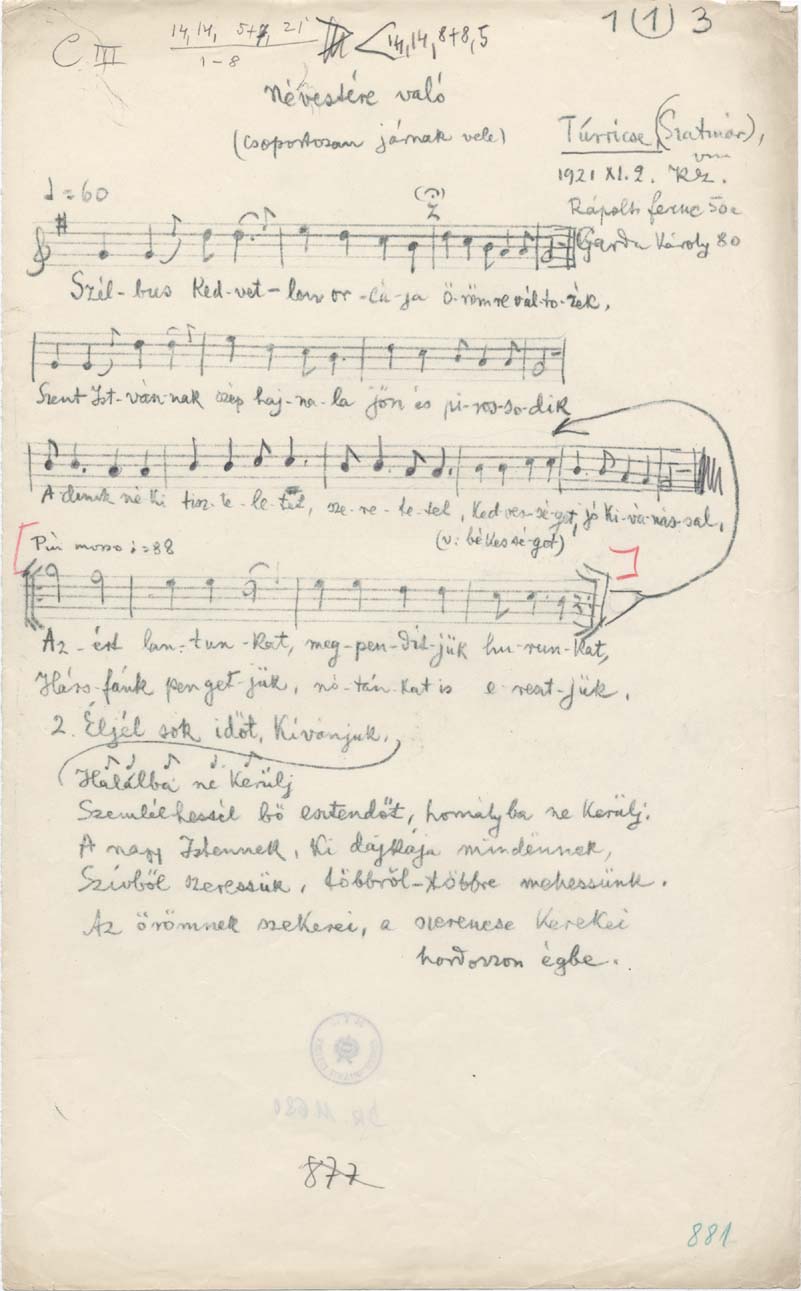 C III 14, 14, 5+7, 21 14, 14, 8+8, 5 1 (1) 3
1-8
Névestére való
(csoportosan járnak vele)
Túrricse (Szatmár),
vm
1921 XI. 2. Kz.
♩=60
Rápolti ferenc 50e
Garda Károly 80
Szél-bus Ked-vet-len or-cá-ja ö-röm re vál-to-zék,
Szent Ist-ván-nak szép haj-na-la jön és pi-ros-so-dik
A-dunk né-ki tisz-te-le-tet, sze-re-te-tel, Ked-ves-sé-get, jó Ki-vá-nás-sal,
(v: békessé-got)
Piú mosso ♩=88
Az-ért lan-tun-Kat, meg-pen-dít-jük hu-run-Kat,
Hárs-fánk pen get-jük, nó-tán-Kat is e-reszt-jük.
2. Éljél sok időt, Kívánjuk,
Halálba ne Kerülj
Szemlélhessél bő esztendőt, homályba ne Kerülj.
A nagy Istennek, Ki dajkája mindennek,
Szívből szeressük, többről-többre mehessünk.
Az örömnek szekerei, a szerencse Kerekei
hordozzon égbe.
877
881